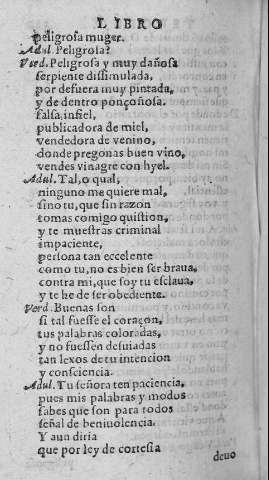 LIBRO
peligrosa muger.
Adul. Peligrosa?
Verd. Peligrosa y muy dañosa
serpiente dissimulada,
por defuera muy pintada,
y de dentro ponçoñosa.
falsa, infiel,
publicadora de miel,
vendedora de venino,
donde pregonas buen vino,
vendes vinagre con hyel.
Adul. Tal, o qual,
ninguno me quiere mal,
sino tu, que sin razon
tomas comigo quistion,
y te muestras criminal
impaciente,
persona tan eccelente
como tu, no es bien ser braua,
contra mi, que soy tu esclaua,
y te he de ser obediente.
Verd. Buenas son
si tal fuesse el coraçon,
tus palabras coloradas,
y no fuessen desuiadas
tan lexos de tu intencion
y consciencia.
Adul. Tu señora ten paciencia,
pues mis palabras y modos
sabes que son para todos
señal de beniuolencia.
Y aun diria
que por ley de cortesia
deuo